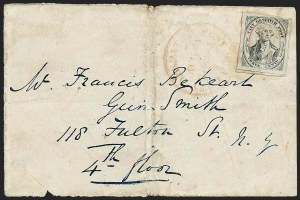 Mr. Francis Bekeart
Gun Smith
118 Fulton St. N.Y
4th floor